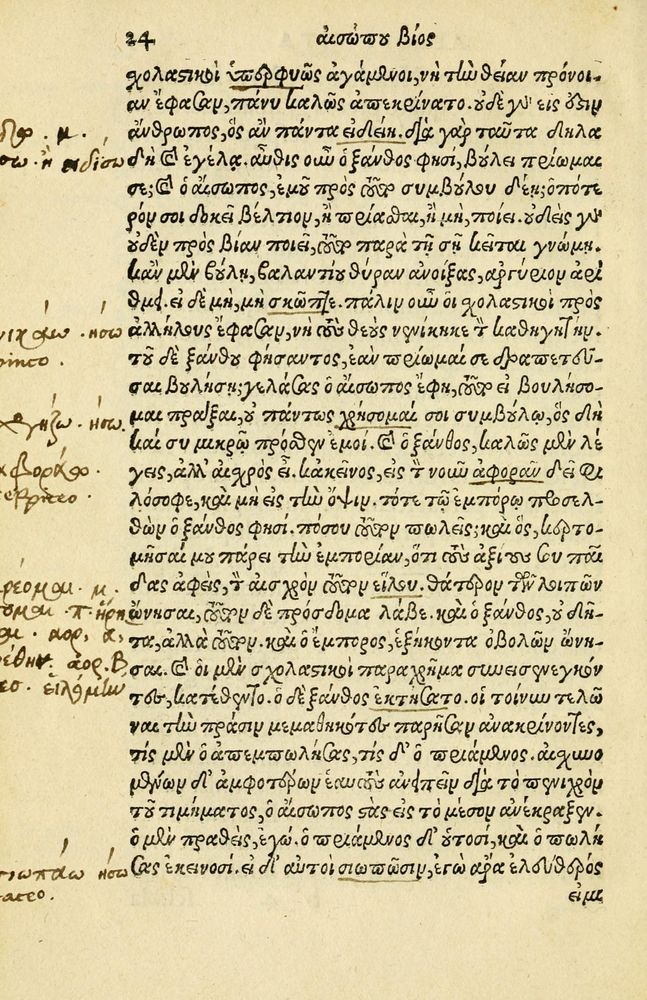 24 αἰσώπου βίος
χολαστικοὶ ὑπερφυῶς ἀγάμενοι, νὴ τὴν θείαν πρόνοι-
αν ἔφασαν, πάνυ καλῶς ἀπεκρίνατο. οὐδὲ γὰρ εἷς ἐστιν
ἄνθρωπος, ὃς ἂν πάντα εἰδείη. διὰ γὰρ ταῦτα δηλα
δὴ καὶ ἐγέλα. αὖθις οὖν ὁ ξάνθος φησί, βούλει πρίωμαι
σε; καὶ ὁ αἴσωπος, ἐμοῦ πρὸς τοῦτο συμβούλου δέῃ; ὁπότε
ρόν σοι δοκεῖ βέλτιον, ἢ πρίασθαι, ἢ μὴ, ποίει. οὐδεὶς γὰρ
οὐδὲν πρὸς βίαν ποιεῖ, τοῦτο παρὰ τῇ σῇ κεῖται γνώμῃ.
κἂν μὲν βούλῃ, βαλαντίου θύραν ἀνοίξας, ἀργύριον ἀρί
θμει. εἰ δὲ μὴ, μὴ σκῶπτε. πάλιν οὖν οἱ σχολαστικοὶ πρὸς
ἀλλήλους ἔφασαν, νὴ τοὺς θεοὺς νενίκηκε τὸν καθηγητήν.
τοῦ δὲ ξάνθου φήσαντος, ἐὰν πρίωμαί σε δραπετεῦ-
σαι βουλήσῃ; γελάσας ὁ αἴσωπος ἔφη, τοῦτο εἰ βουλήσο-
μαι πρᾶξαι, οὐ πάντως χρήσομαί σοι συμβούλῳ, ὡς δὴ
καὶ σὺ μικρῷ πρόσθεν ἐμοί. καὶ ὁ ξάνθος, καλῶς μὲν λέ
γεις, ἀλλ' αἰσχρὸς εἶ. κἀκεῖνος, εἰς τὸν νοῦν ἀφορᾶν δεῖ φι
λόσοφε, καὶ μὴ εἰς τὴν ὄψιν. τότε τῷ ἐμπόρῳ προσελ-
θὼν ὁ ξάνθος φησί. πόσου τοῦτον πωλεῖς; καὶ ὃς, κερτο-
μῆσαί μου πάρει τὴν ἐμπορίαν, ὅτι τοὺς ἀξίους σου παῖ
δας ἀφεὶς, τὸν αἰσχρὸν τοῦτον εἵλου. θάτερον τῶν λοιπῶν
ὤνησαι, τοῦτον δὲ πρόσδομα λάβε. καὶ ὁ ξάνθος, οὐ δῆ-
τα, ἀλλὰ τοῦτον. καὶ ὁ ἔμπορος, ἑξήκοντα ὀβολῶν ὤνη-
σαι. καὶ οἱ μὲν σχολαστικοὶ παραχρῆμα συνεισενεγκόν
τες, κατέθεντο. ὁ δὲ ξάνθος ἐκτήσατο. οἱ τοίνυν τελῶ
ναι τὴν πρᾶσιν μεμαθηκότες παρῆσαν ἀνακρίνοντες,
τίς μὲν ὁ ἀπεμπωλήσας, τίς δ' ὁ πριάμενος. αἰσχυνο
μένων δ' ἀμφοτέρων ἑαυτοὺς ἀνειπεῖν διὰ τὸ πενιχρὸν
τοῦ τιμήματος, ὁ αἴσωπος στὰς εἰς τὸ μέσον ἀνέκραξεν.
ὁ μὲν πραθεὶς, ἐγώ. ὁ πριάμενος δ' οὑτοσὶ, καὶ ὁ πωλή
σας ἐκεινοσί. εἰ δ' αὐτοὶ σιωπῶσιν, ἐγὼ ἄρα ἐλεύθερός
εἰμι